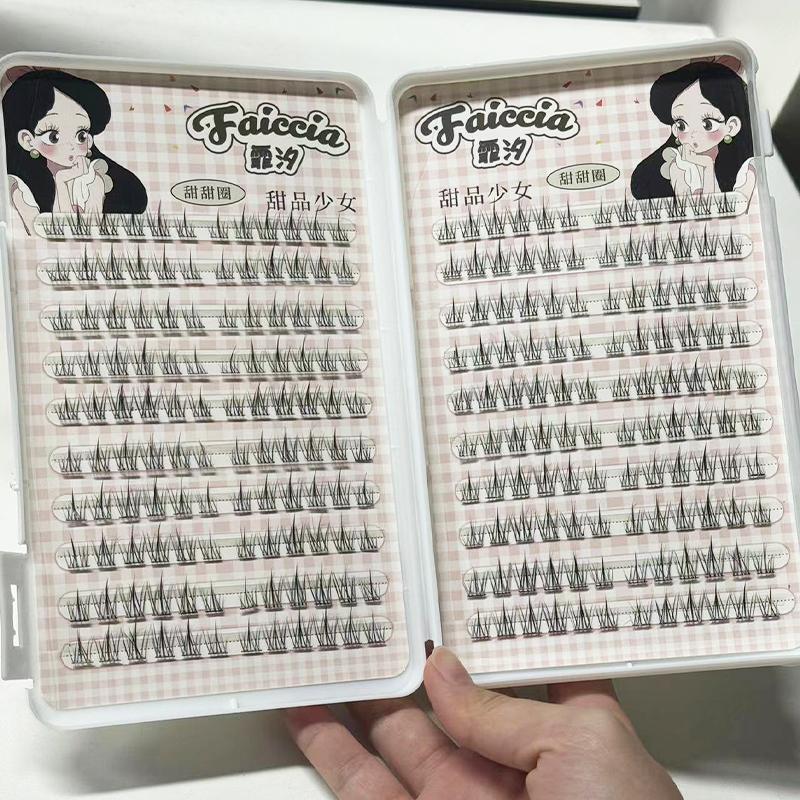 Faiccia
霏汐
甜甜圈
甜品少女
Faiccia
霏汐
甜甜圈
甜品少女